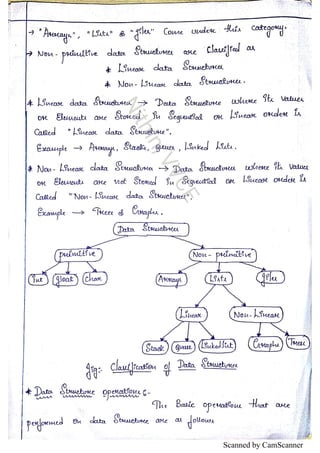 → "Arrays", "Lists" & "files" Come under this category.
→ Non-primitive data Structures are Classified as
* Linear data Structures
* Non-Linear data Structures.
* Linear data Structures → Data Structure where Its Values
or Elements are Stored In Sequential or Linear order Is
Called "Linear data Structure".
Example → Arrays, Stack, queue, Linked Lists.
* Non-Linear data Structures → Data Structures where Its Values
or Elements are not Stored In Sequential or Linear order Is
Called "Non-Linear data Structures".
Example → Trees & Graphs.
Data Structures
primitive Non-primitive
Int float Char Arrays Lists files
Linear Non-Linear
Stack queue Linked list Graphs Trees
fig:- Classification of Data Structures
* Data Structure operations:-
The Basic operations that are
performed on data Structure are as follows
Scanned by CamScanner